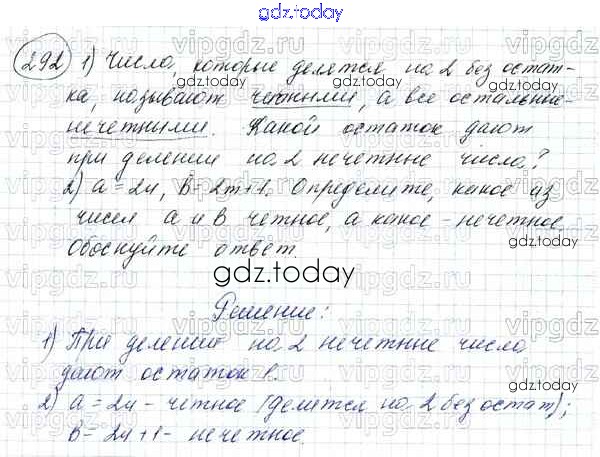 gdz.today
292 1) Числа, которые делятся на 2 без остат-
ка, называют четными, а все остальные-
нечетными. Какой остаток дают
при делении на 2 нечетные числа?
2) a = 2n, B = 2m+1. Определите, какое из
чисел a и B четное, а какое - нечетное.
Обоснуйте ответ.
gdz.today
Решение:
1) При делении на 2 нечетные числа
дают остаток 1.
2) a = 2n - четное (делятся на 2 без остат);
B = 2n+1 - нечетное